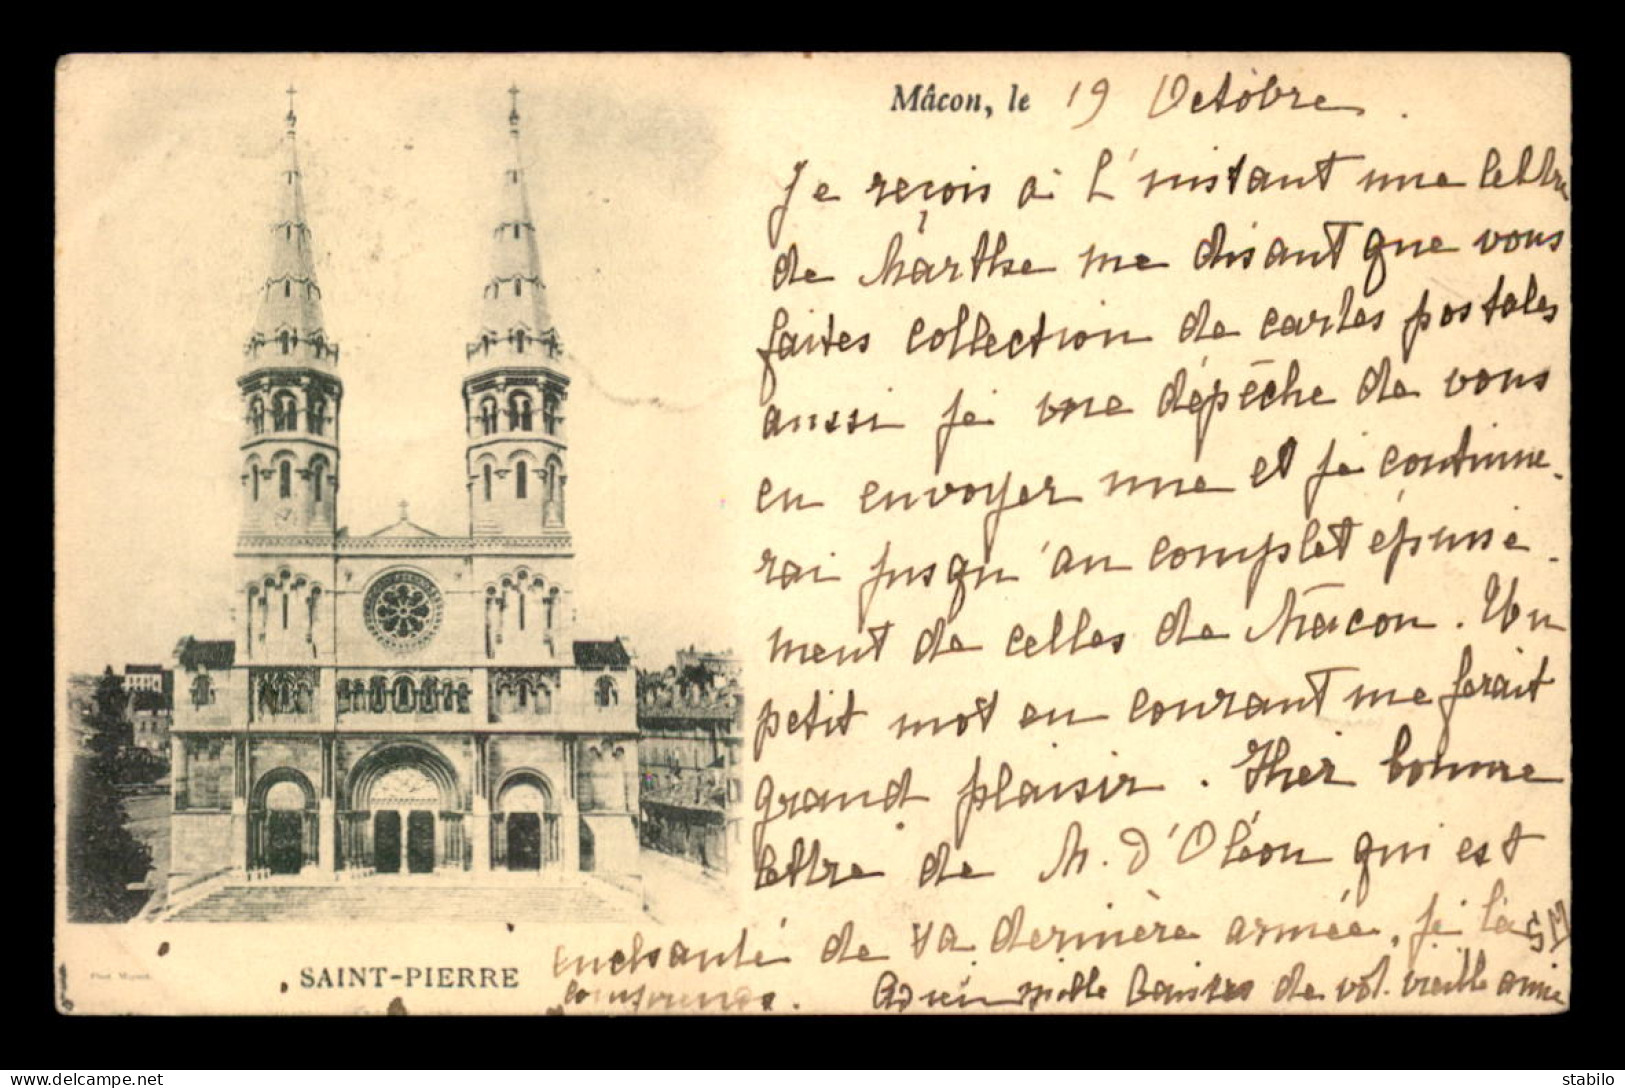 Mâcon, le 19 Octobre.
Je reçois à l'instant une lettre
de Marthe me disant que vous
faites collection de cartes postales
aussi je me dépêche de vous
en envoyer une et je continue-
rai jusqu'au complet épuise-
ment de celles de Mâcon. Un
petit mot en courant me ferait
grand plaisir. Hier bonne
lettre de M. d'Oléon qui est
enchanté de sa dernière armée, je le
SM
comprends. Adieu mille baisers de vot. vieille amie
SAINT-PIERRE
stabilo